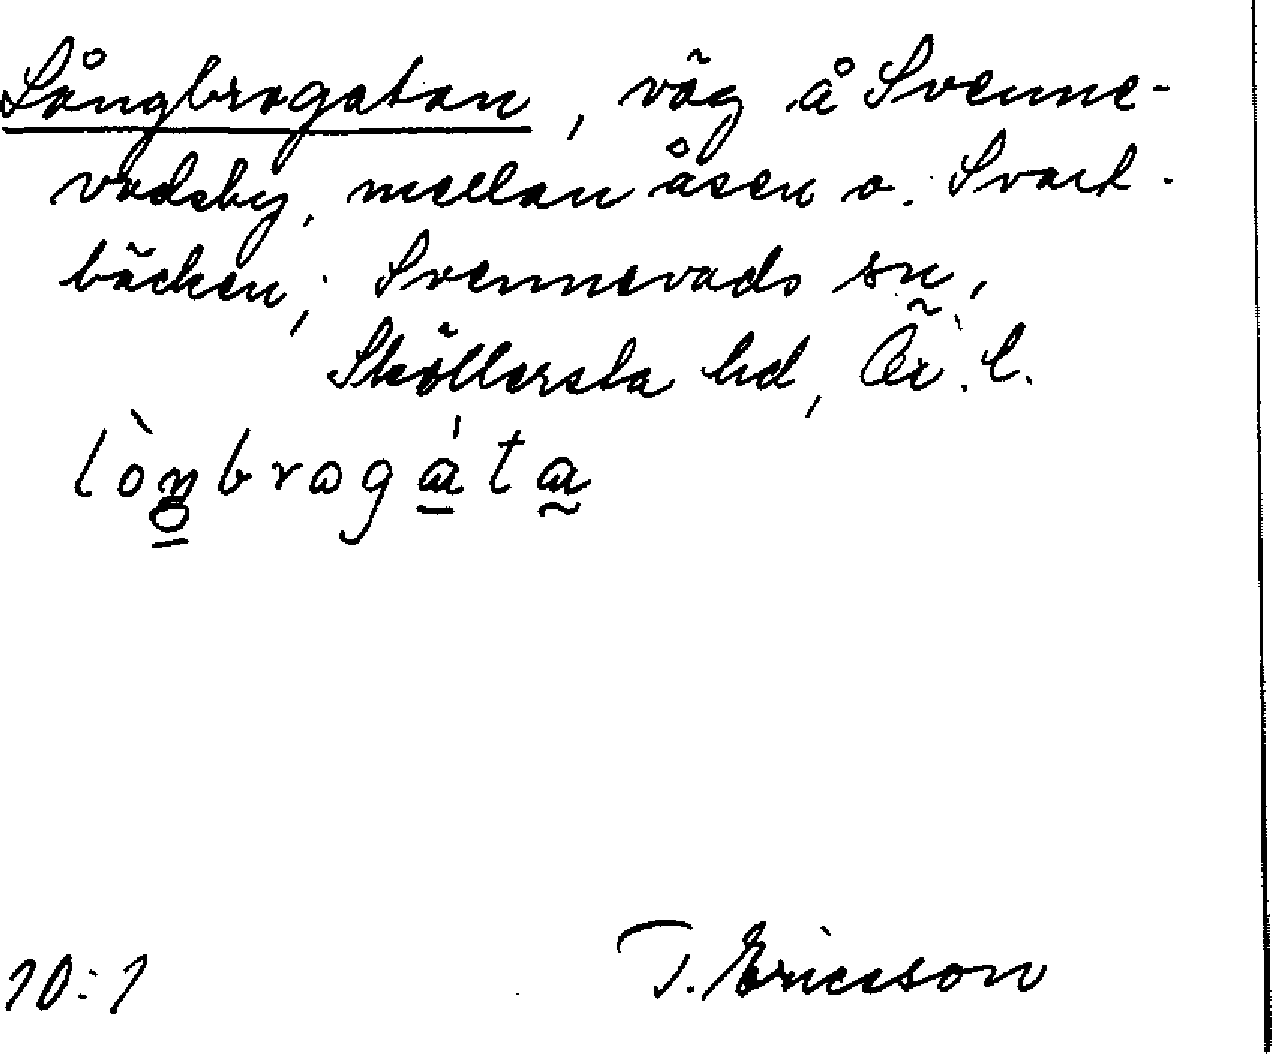 Långbrogatan, väg å Svenne-
vadsby, mellan åsen o. Svart-
bäcken, Svennevads sn,
Sköllersta hd, Ör. l.
lòŋbrogáta
10:1 T. Ericsson